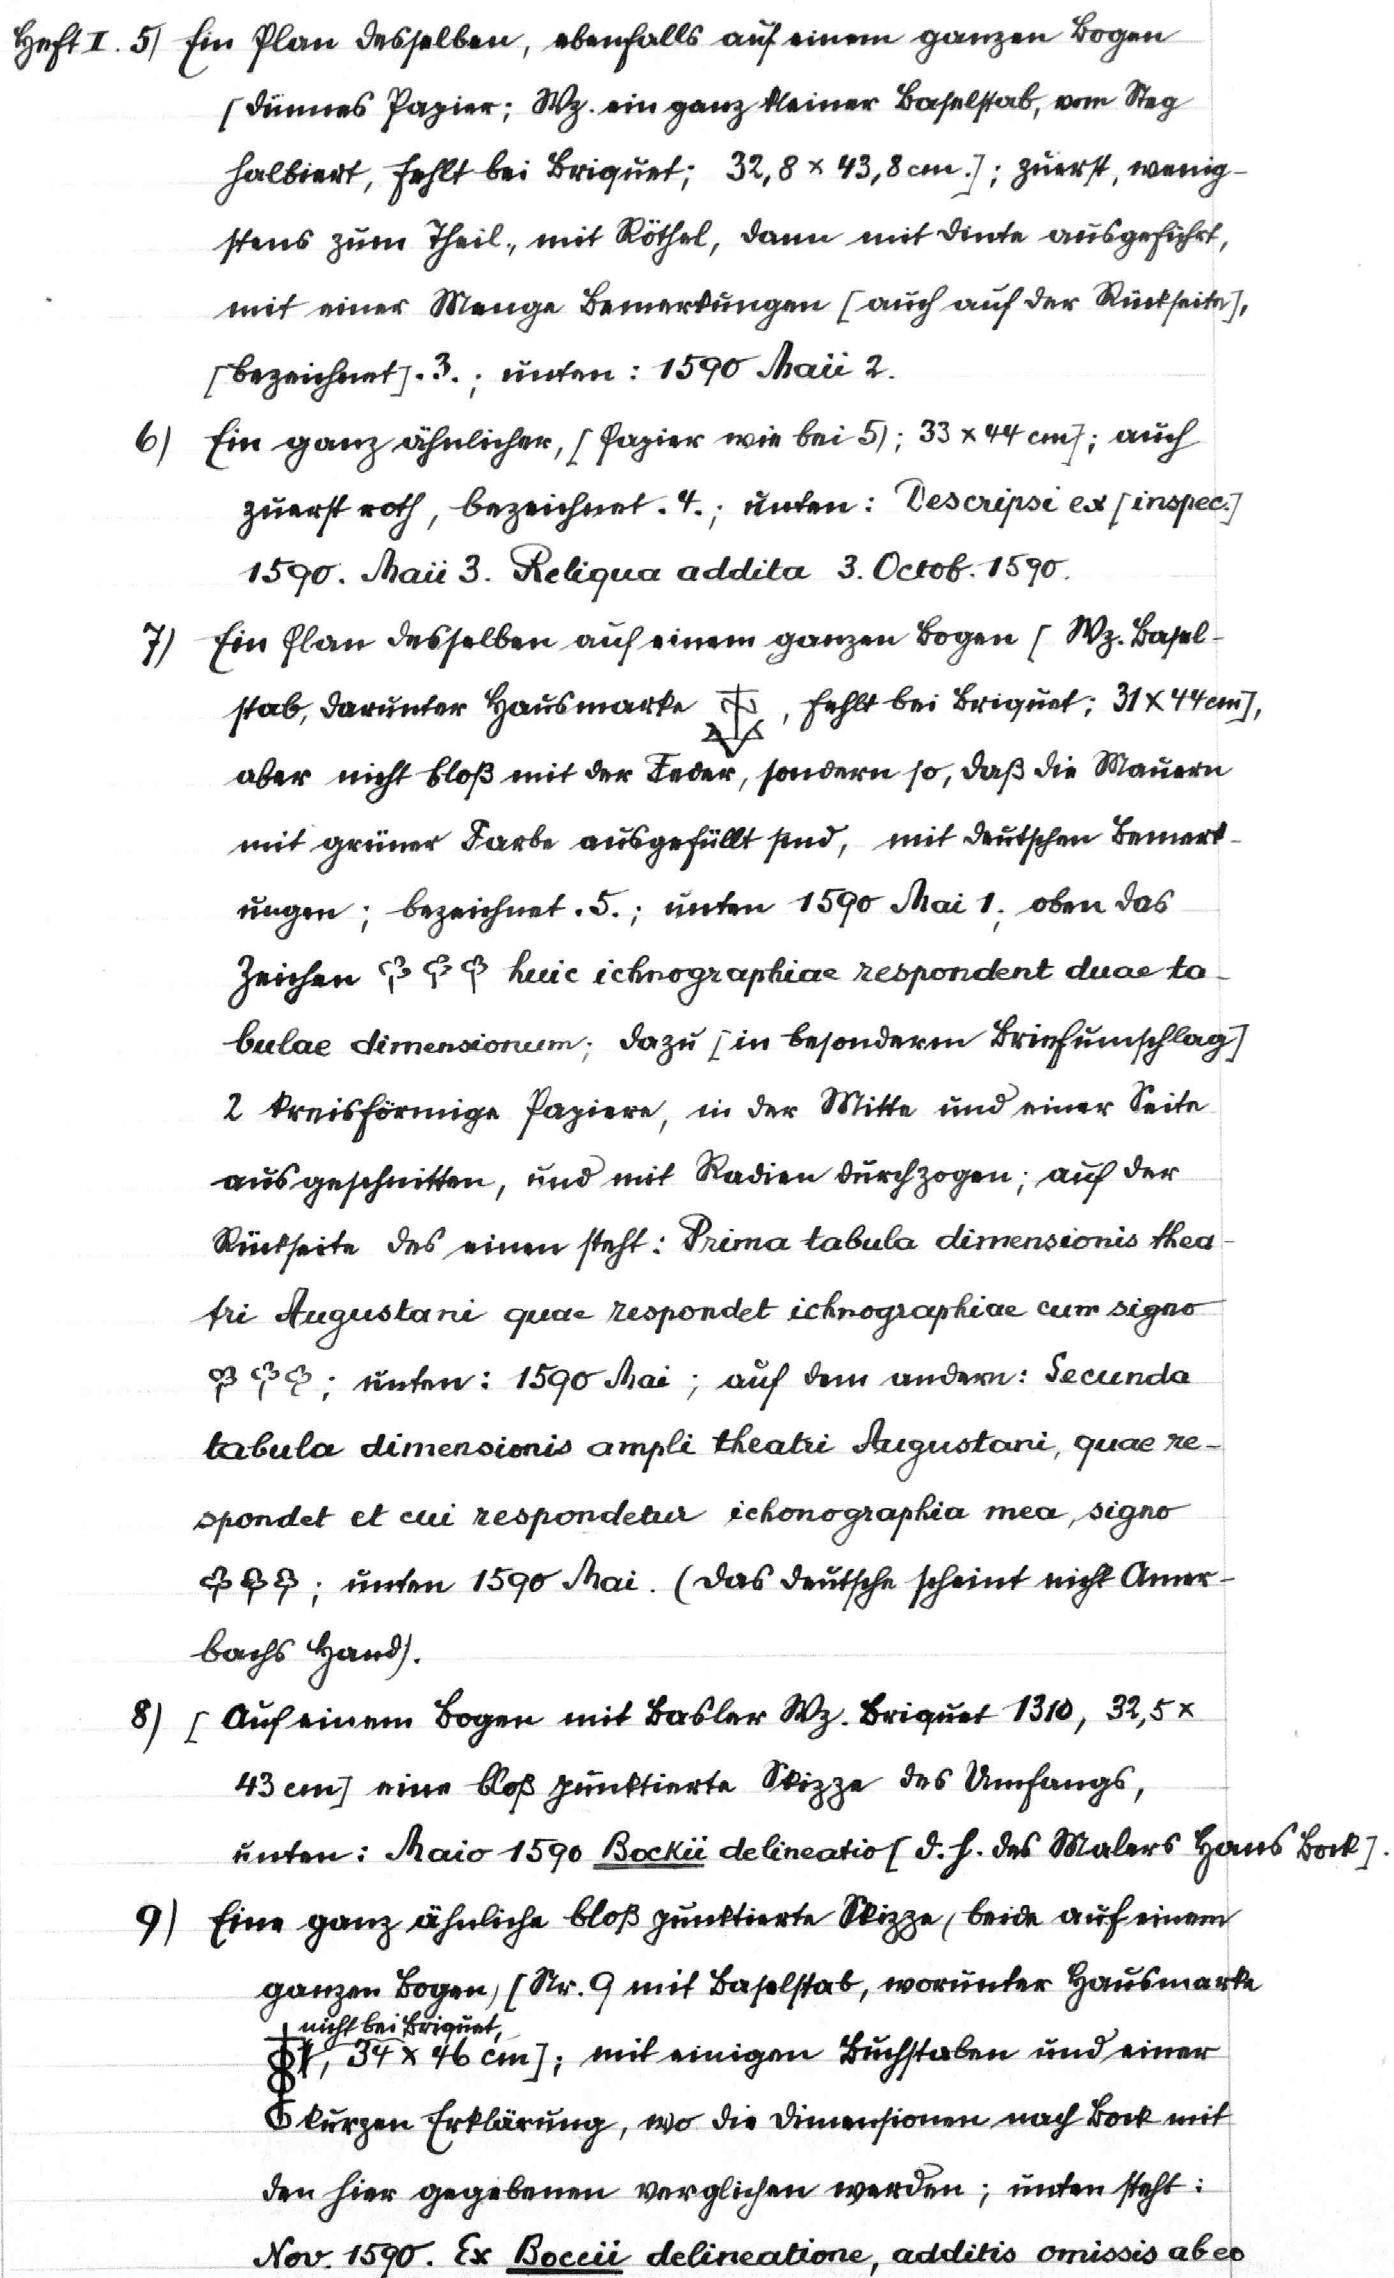 Heft II. 5) Ein Plan desselben, ebenfalls auf einem ganzen Bogen
[dünnes Papier; Wz. ein ganz kleiner Baselstab, vom Steg
halbiert, fehlt bei Briquet; 32,8 × 43,8 cm.]; zuerst, wenig-
stens zum Theil., mit Röthel, dann mit Dinte ausgeführt,
mit einer Menge Bemerkungen [auch auf der Rückseite],
[bezeichnet] .3. ; unten : 1590 Maii 2.
6) Ein ganz ähnlicher, [Papier wie bei 5); 33 × 44 cm]; auch
zuerst roth, bezeichnet .4. ; unten : Descripsi ex [inspec.]
1590. Maii 3. Reliqua addita 3. Octob. 1590.
7) Ein Plan desselben auf einem ganzen Bogen [Wz. Basel-
stab, darunter Hausmarke , fehlt bei Briquet; 31 × 44 cm],
aber nicht bloß mit der Feder, sondern so, daß die Mauern
mit grüner Farbe ausgefüllt sind, mit deutschen Bemerk-
ungen ; bezeichnet .5. ; unten 1590 Mai 1; oben das
Zeichen huic ichnographiae respondent duae ta-
bulae dimensionum; dazu [in besonderm Briefumschlag]
2 kreisförmige Papiere, in der Mitte und einer Seite
ausgeschnitten, und mit Radien durchzogen; auf der
Rückseite des einen steht : Prima tabula dimensionis thea-
tri Augustani quae respondet ichnographiae cum signo
; unten : 1590 Mai ; auf dem andern : Secunda
tabula dimensionis ampli theatri Augustani, quae re-
spondet et cui respondetur ichonographia mea, signo
; unten 1590 Mai. (Das deutsche scheint nicht Amer-
bachs Hand).
8) [Auf einem Bogen mit Basler Wz. Briquet 1310, 32,5 ×
43 cm] eine bloß punktierte Skizze des Umfangs,
unten : Maio 1590 Bockii delineatio [d. h. des Malers Hans Bock].
9) Eine ganz ähnliche bloß punktierte Skizze (beide auf einem
ganzen Bogen) [Nr. 9 mit Baselstab, worunter Hausmarke
nicht bei Briquet,
, 34 × 46 cm]; mit einigen Buchstaben und einer
kurzen Erklärung, wo die Dimensionen nach Bock mit
den hier gegebenen verglichen werden ; unten steht :
Nov. 1590. Ex Boccii delineatione, additis omissis ab eo